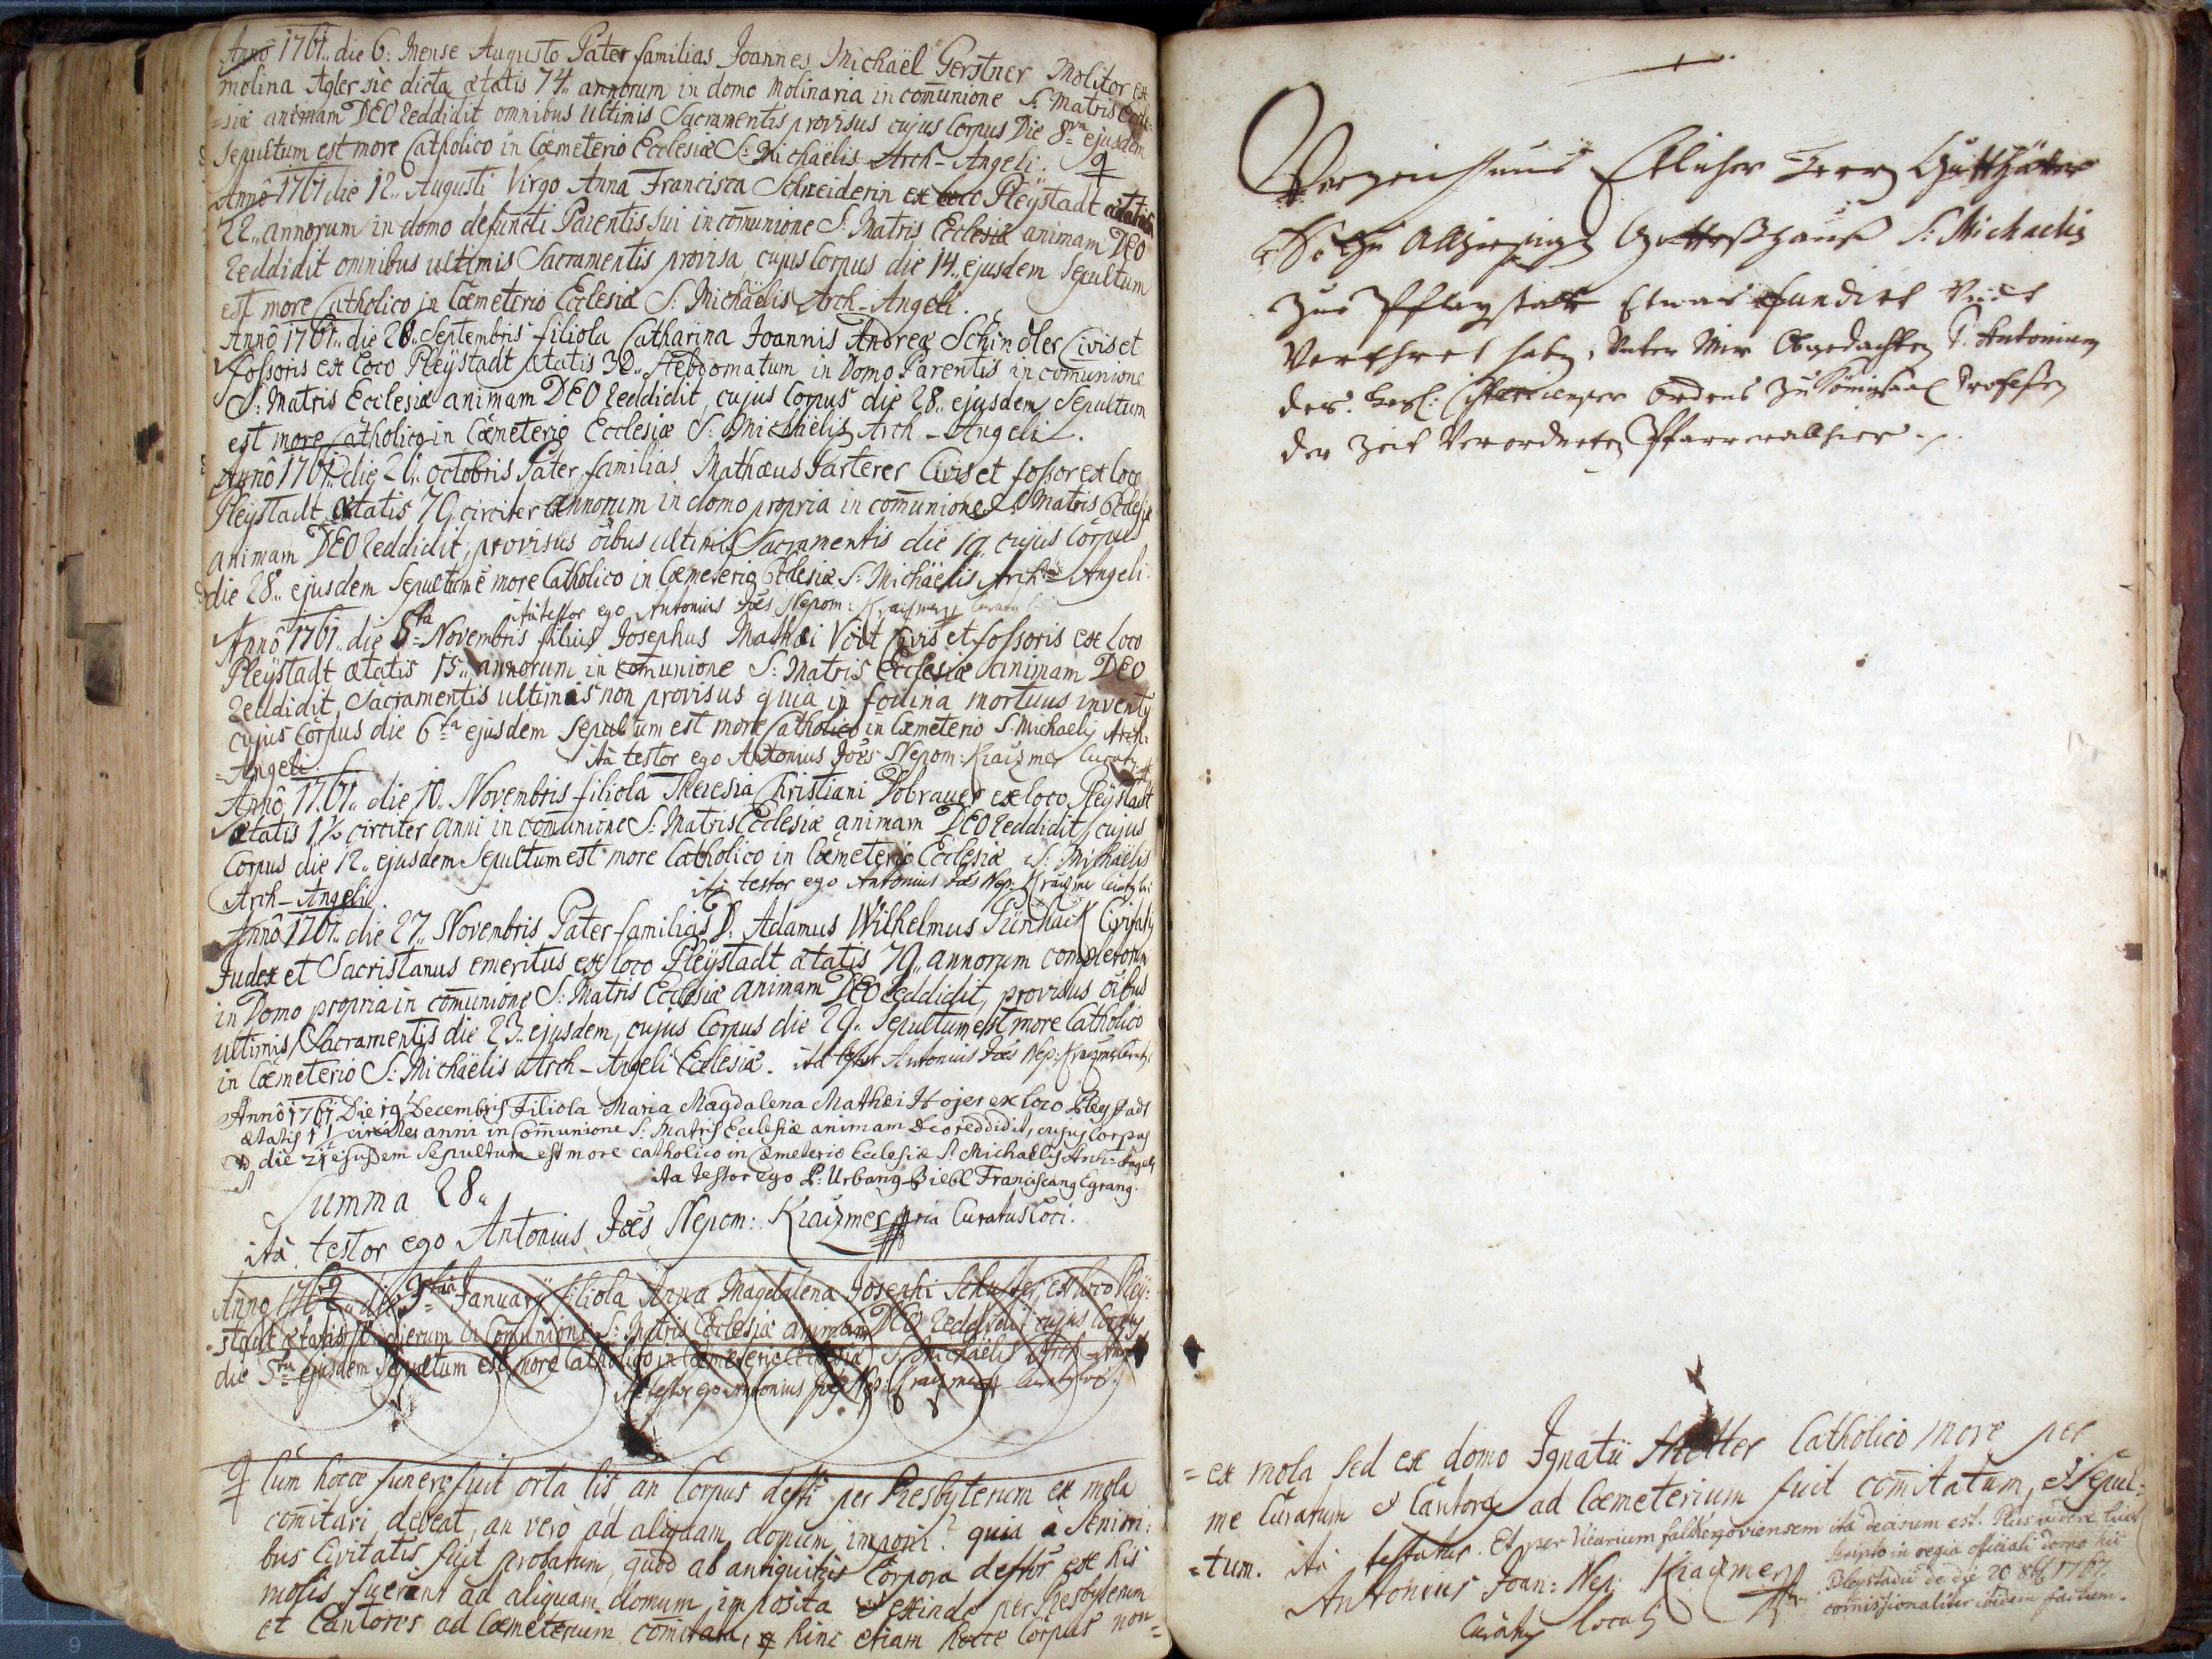 Annô 1761. die 6: Mense Augusto Pater familias Joannes Michaël Gerstner Molitor ex
molina Agler sic dicta ætatis 74. annorum in domo molinaria in com̄unione S: Matris Eccle=
=siæ animam DEO reddidit omnibus ultimis Sacramentis provisus cujus Corpus Die 8va ejusdem
Sepultum est more Catholico in Cœmeterio Ecclesiæ S: Michaëlis Arch-Angeli.
Annô 1761 die 12. Augusti Virgo Anna Francisca Schneiderin ex loco Pleÿstadt ætatis
22. annorum in domo defuncti Parentis sui in com̄unione S: Matris Ecclesiæ animam DEO
reddidit omnibus ultimis Sacramentis provisa, cujus Corpus die 14. ejusdem Sepultum
est more Catholico in Cœmeterio Ecclesiæ S: Michaëlis Arch-Angeli.
Annô 1761. die 26. Septembris filiola Catharina Joannis Andreæ Schindler Civis et
fossoris ex loco Pleÿstadt ætatis 32. Hebdomatum in Domo Parentis in com̄unione
S: Matris Ecclesiæ animam DEO reddidit, cujus Corpus die 28. ejusdem Sepultum
est more Catholico in Cœmeterio Ecclesiæ S: Michaëlis Arch-Angeli.
Annô 1761. die 26. octobris Pater familias Mathæus Farterer Civis et fossor ex loco
Pleÿstadt ætatis 79 circiter annorum in domo propria in com̄unione S: Matris Eccles̄iæ
animam DEO reddidit, provisus oībus ultimis Sacramentis die 19. cujus Corpus
die 28. ejusdem Sepultum ē more Catholico in Cœmeterio Ecclesiæ S: Michaëlis Arch-Angeli.
ità testor ego Antonius Joēs Nepom: Kraizmer
Annô 1761. die 5ta Novembris filius Josephus Mathæi Voit Civis et fossoris ex loco
Pleÿstadt ætatis 15. annorum in com̄unione S: Matris Ecclesiæ animam DEO
reddidit, Sacramentis ultimis non provisus quia in fodina mortuus invent9
cujus Corpus die 6ta ejusdem Sepultum est more Catholico in Cœmeterio S: Michaelis Arch:
=Angeli. ità testor ego Antonius Joēs Nepom: Kraizmer Curat9
Annô 1761. die 10. Novembris filiola Theresia Christiani Dobrauer ex loco Pleÿstadt
ætatis 1½ circiter anni in com̄unione S: Matris Ecclesiæ animam DEO reddidit, cujus
Corpus die 12. ejusdem Sepultum est more Catholico in Cœmeterio Ecclesiæ S: Michaëlis
Arch-Angeli. ità testor ego Antonius Joēs Nep: Kraizmer
Annô 1761. die 27. Novembris Pater familias D: Adamus Wilhelmus Pünhack Civitatis
Judex et Sacristanus emeritus ex loco Pleÿstadt ætatis 79. annorum completorum
in Domo propria in com̄unione S: Matris Ecclesiæ animam DEO reddidit, provisus oībus
ultimis Sacramentis die 23. ejusdem, cujus Corpus die 29. Sepultum est more Catholico
in Cœmeterio S: Michaëlis Arch-Angeli Ecclesiæ. ità testor Antonius Joēs Nep: Kraizmer
Annô 1761 Die 19 Decembris Filiola Maria Magdalena Mathæi Hojer ex loco Pleystadt
ætatis circiter anni in Com̄unione S: Matris Ecclesiæ animam Deo reddidit, cujus Corpus
die 21 ejusdem Sepultum est more catholico in Cæmeterio Ecclesiæ S: Michaelis Arch=Angeli
ita testor ego P: Urbanus Biebl Franciscanus Egranus.
Summa 28.
ità testor ego Antonius Joēs Nepom: Kraizmer mpria Curatus Loci.
Anno 1762. die 3tia Januarÿ filiola Anna Magdalena Josephi Schuster, ex loco Pleÿ:
=stadt ætatis dierum in Com̄unione S: Matris Ecclesiæ animam DEO reddidit cujus Corpus
die 5ta ejusdem Sepultum est more Catholico in Cœmeterio Ecclesiæ S: Michaëlis Arch-Angeli
ità testor ego Antonius Joēs Nep: Kraizmer
Cum hocce funere fuit orta lis, an Corpus defti per Presbyterum ex mola
com̄itari debeat, an verò ad aliquam domum imponi? quia à Seniori:
bus Civitatis fuit probatum, quòd ab antiquitùs Corpora deftor ex his
molis fuerint ad aliquam domum imposita et exinde per Presbyterum
et Cantores ad Cœmeterium com̄itata, hinc etiam hocce Corpus non=
Verzeichnus Etlicher Herrn Gutthäter
Welche Allhiesign Gotteßhauß S: Michaelis
Zue Pfleystatt Etwas fundirt Vndt
Verehret habn, Vnter Mir Obgedachten F. Antonium
des Cistercienser Ordens Zu Königsaal Professen
der Zeit Verordneten Pfarrer allhier.
=ex mola sed ex domo Ignatii Catholico more per
me Curatum et Cantores ad Cœmeterium fuit com̄itatum, et Sepul:
=tum. ità testatur. Et per Vicarium falkenoviensem ità decisum est. Plus videre licet
scripto in regia officiali domo hic
Antonius Joan: Nep: Kraizmer Bleystadii de die 20 8b 1767.
Curatus Locali com̄issionaliter ibidem factum.